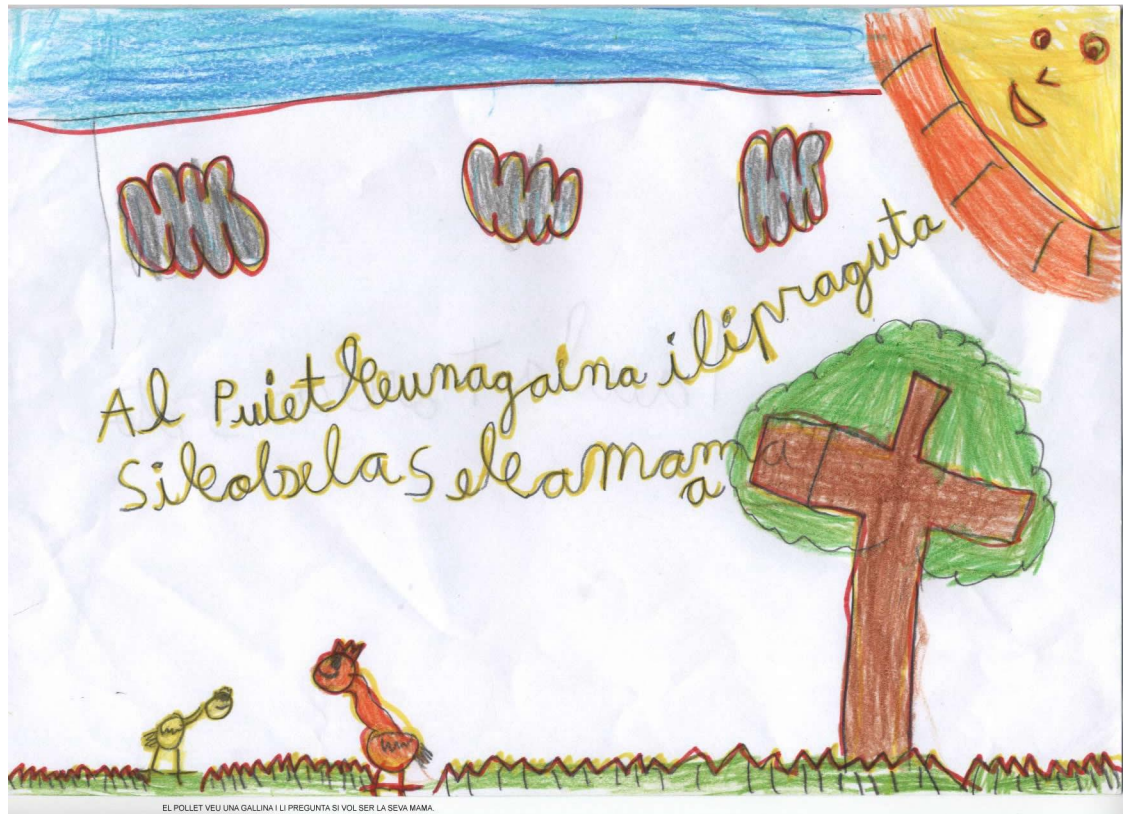 Al Puiet veunagalna i li praguta
Sivolsela Sevamama
a
EL POLLET VEU UNA GALLINA I LI PREGUNTA SI VOL SER LA SEVA MAMA.